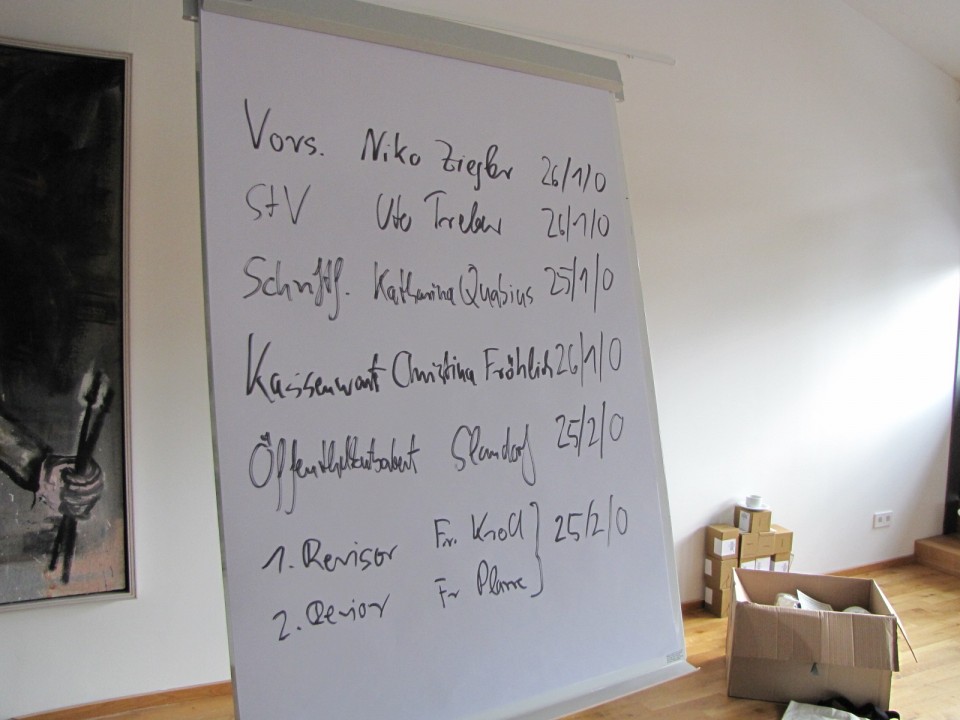 Vors. Niko Ziegler 26/1/0
StV Ute Treber 26/1/0
Schriftf. Katharina Quabius 25/1/0
Kassenwart Christina Fröhlich 26/1/0
Öffentlktsarbeit 25/2/0
1. Revisor Fr. Kroll } 25/2/0
2. Revior Fr